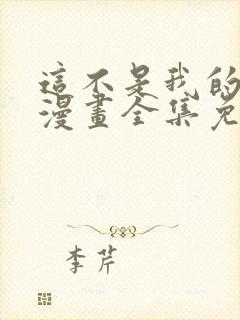 這不是我的
漫畫全集免
李芹